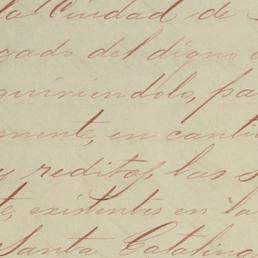 la Ciudad de
gado del digno
quiriendolo, pa
mente, en cant
y reditos, las s
te, existentes en la
Santa Catalina